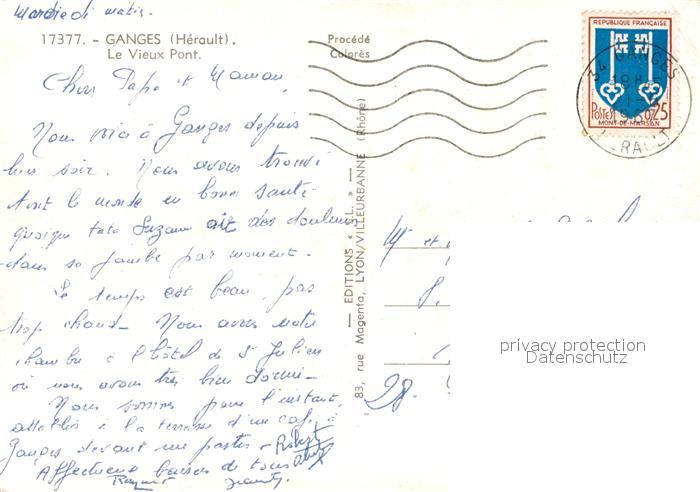 Mardi matin
17377. - GANGES (Hérault).
Le Vieux Pont.
Procédé
Colorès
Chers Papa et Maman,
Nous voici à Ganges depuis
hier soir. Nous avons trouvé
tout le monde en bonne santé
quoique tata Suzanne ait des douleurs
dans sa jambe par moment.
Le temps est beau, pas
trop chaud. Nous avons notre
chambre à l'hôtel de St Julien
où nous avons très bien dormi.
Nous sommes pour l'instant,
attablés à la terrasse d'un café à
Ganges devant un pastis. Robert
Affectueux baisers de tous
— EDITIONS « S.L. » —
83, rue Magenta, LYON/VILLEURBANNE (Rhône)
REPUBLIQUE FRANÇAISE
POSTES 0,25
MONT-DE-MARSAN
34 GANGES
18 H
HERAULT
M et
28
privacy protection
Datenschutz